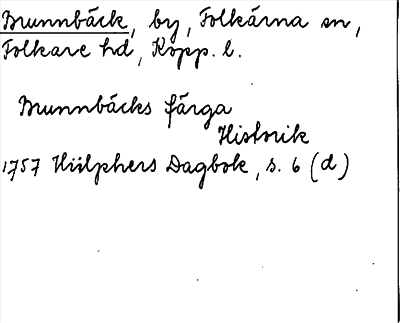 Brunnbäck, by, Folkärna sn,
Folkare hd, Kopp. l.
Brunnbäcks färga
Historik
1757 Hülphers Dagbok, s. 6 (d)